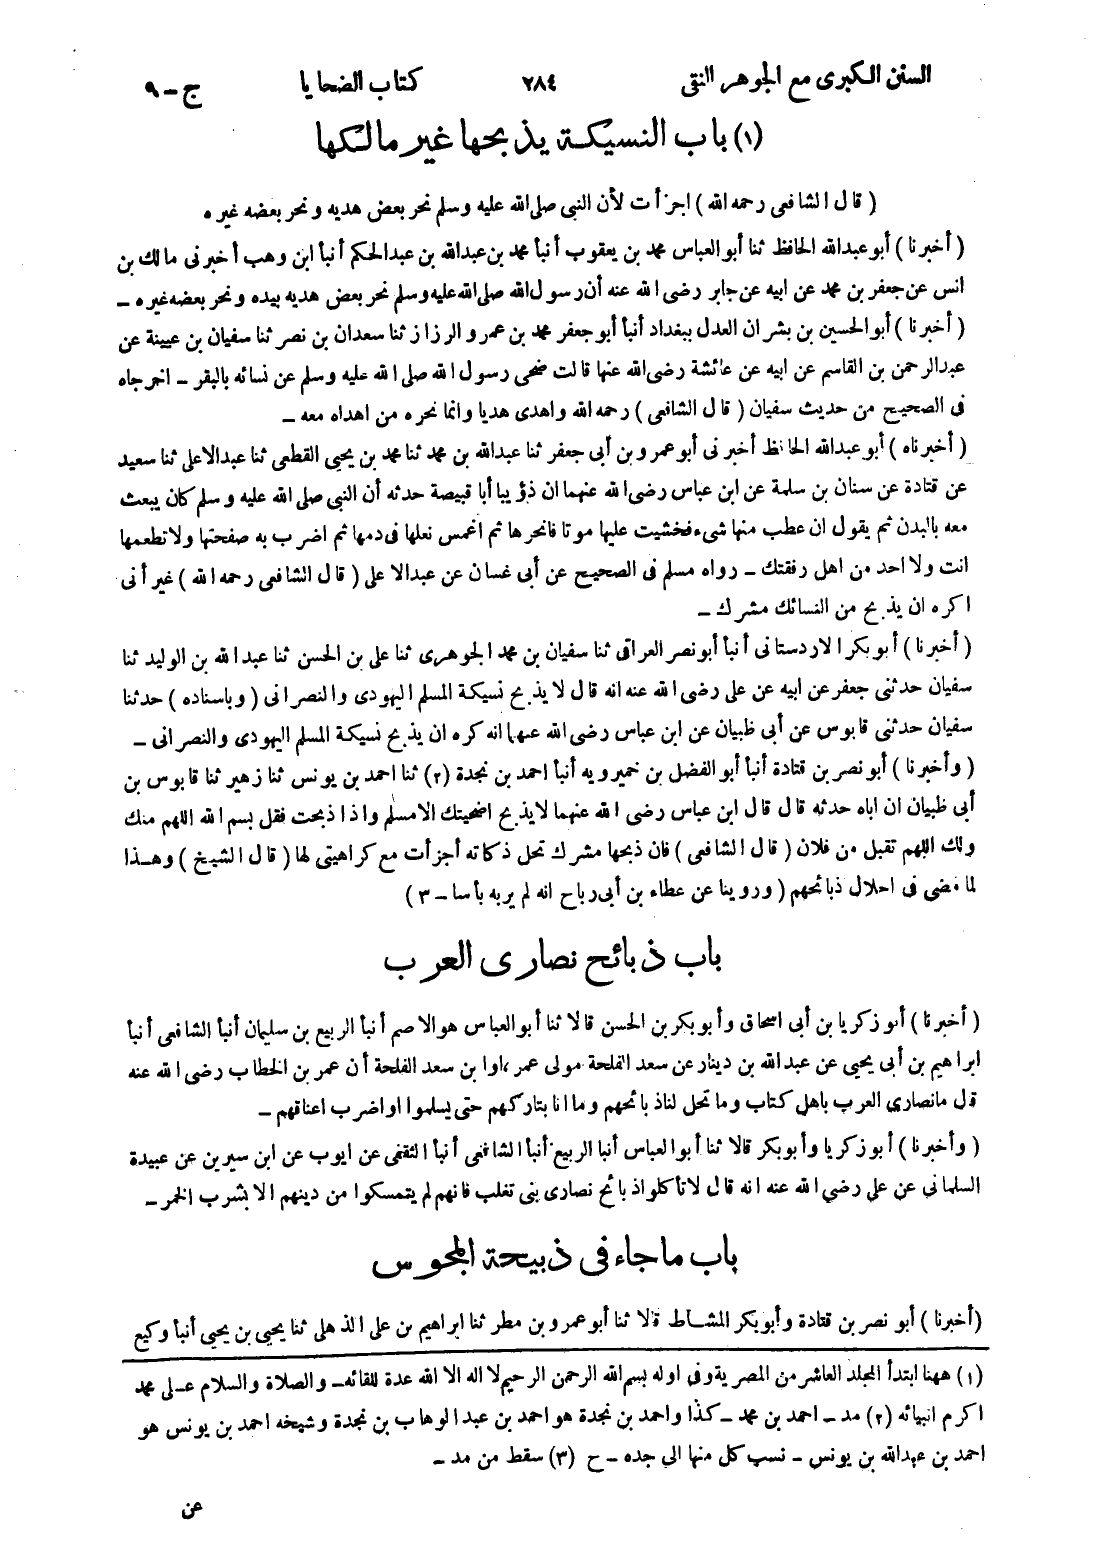 السنن الكبرى مع الجوهر النقى ٢٨٤ كتاب الضحايا ج - ٩
(١) باب النسيكة يذبحها غير مالكها
( قال الشافعى رحمه الله ) اجزأت لأن النبى صلى الله عليه وسلم نحر بعض هديه ونحر بعضه غيره
( أخبرنا ) أبو عبدالله الحافظ ثنا أبو العباس محمد بن يعقوب أنبأ محمد بن عبدالله بن عبدالحكم أنبأ ابن وهب أخبرنى مالك بن
انس عن جعفر بن محمد عن ابيه عن جابر رضى الله عنه أن رسول الله صلى الله عليه وسلم نحر بعض هديه بيده ونحر بعضه غيره ـ
( أخبرنا ) أبو الحسين بن بشران العدل ببغداد أنبأ أبو جعفر محمد بن عمرو الرزاز ثنا سعدان بن نصر ثنا سفيان بن عيينة عن
عبدالرحمن بن القاسم عن ابيه عن عائشة رضى الله عنها قالت ضحى رسول الله صلى الله عليه وسلم عن نسائه بالبقر ـ اخرجاه
فى الصحيح من حديث سفيان ( قال الشافعى ) رحمه الله واهدى هديا وانما نحره من اهداه معه ـ
( أخبرناه ) أبو عبدالله الحافظ أخبرنى أبو عمرو بن أبى جعفر ثنا عبدالله بن محمد ثنا محمد بن يحيى القطعى ثنا عبدالاعلى ثنا سعيد
عن قتادة عن سنان بن سلمة عن ابن عباس رضى الله عنهما ان ذؤيبا أبا قبيصة حدثه أن النبى صلى الله عليه وسلم كان يبعث
معه بالبدن ثم يقول ان عطب منها شىء فخشيت عليها موتا فانحرها ثم اغمس نعلها فى دمها ثم اضرب به صفحتها ولا تطعمها
انت ولا احد من اهل رفقتك ـ رواه مسلم فى الصحيح عن أبى غسان عن عبدالاعلى ( قال الشافعى رحمه الله ) غير أنى
اكره ان يذبح من النسائك مشرك ـ
( أخبرنا ) أبو بكر الاردستانى أنبأ أبو نصر العراقى ثنا سفيان بن محمد الجوهرى ثنا على بن الحسن ثنا عبدالله بن الوليد ثنا
سفيان حدثنى جعفر عن ابيه عن على رضى الله عنه انه قال لا يذبح نسيكة المسلم اليهودى والنصرانى ( وباسناده ) حدثنا
سفيان حدثنى قابوس عن أبى ظبيان عن ابن عباس رضى الله عنهما انه كره ان يذبح نسيكة المسلم اليهودى والنصرانى ـ
( وأخبرنا ) أبو نصر بن قتادة أنبأ أبو الفضل بن خميرويه أنبأ احمد بن نجدة (٢) ثنا احمد بن يونس ثنا زهير ثنا قابوس بن
أبى ظبيان ان اباه حدثه قال قال ابن عباس رضى الله عنهما لا يذبح اضحيتك الا مسلم واذا ذبحت فقل بسم الله اللهم منك
ولك اللهم تقبل من فلان ( قال الشافعى ) فان ذبحها مشرك تحل ذكاته أجزأت مع كراهيتى لها ( قال الشيخ ) وهذا
لما مضى فى احلال ذبائحهم ( وروينا عن عطاء بن أبى رباح انه لم ير به بأسا ـ ٣ )
باب ذبائح نصارى العرب
( أخبرنا ) أبو زكريا بن أبى اسحاق وأبو بكر بن الحسن قالا ثنا أبو العباس هو الاصم أنبأ الربيع بن سليمان أنبأ الشافعى أنبأ
ابراهيم بن أبى يحيى عن عبدالله بن دينار عن سعد الفلحة مولى عمر ،اوا بن سعد الفلحة أن عمر بن الخطاب رضى الله عنه
قال ما نصارى العرب باهل كتاب وما تحل لنا ذبائحهم وما انا بتاركهم حتى يسلموا او اضرب اعناقهم ـ
( وأخبرنا ) أبو زكريا وأبو بكر قالا ثنا أبو العباس أنبا الربيع أنبأ الشافعى أنبأ الثقفى عن ايوب عن ابن سيرين عن عبيدة
السلمانى عن على رضى الله عنه انه قال لا تأكلوا ذبائح نصارى بنى تغلب فانهم لم يتمسكوا من دينهم الا بشرب الخمر ـ
باب ما جاء فى ذبيحة المجوس
(أخبرنا ) أبو نصر بن قتادة وأبو بكر المشاط قالا ثنا أبو عمرو بن مطر ثنا ابراهيم بن على الذهلى ثنا يحيى بن يحيى أنبأ وكيع
(١) ههنا ابتدأ المجلد العاشر من المصرية وفى اوله بسم الله الرحمن الرحيم لا اله الا الله عدة للقائه ـ والصلاة والسلام على محمد
اكرم انبيائه (٢) مد ـ احمد بن محمد ـ كذا واحمد بن نجدة هو احمد بن عبد الوهاب بن نجدة وشيخه احمد بن يونس هو
احمد بن عبدالله بن يونس ـ نسب كل منها الى جده ـ ح (٣) سقط من مد ـ
عن